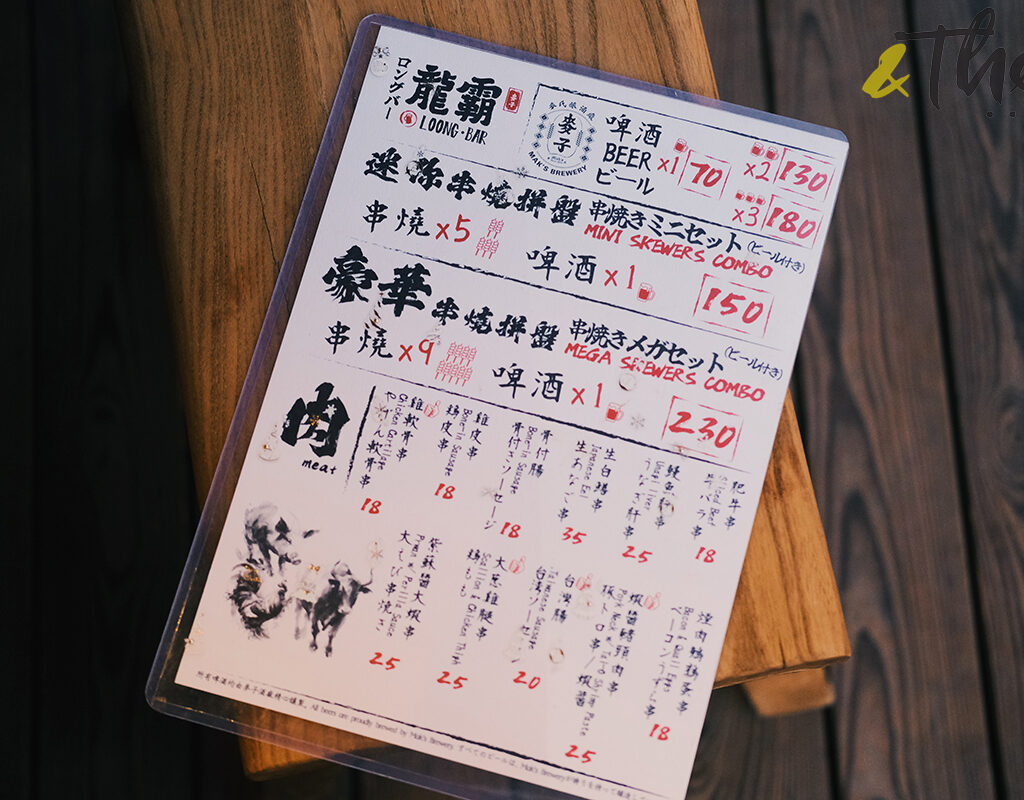 ロングバー
龍霸
LOONG·BAR
麥子
MAK'S BREWERY
啤酒
BEER
ビール
x1 70
x2 130
x3 180
迷你串燒拼盤
串焼きミニセット(ビール付き)
MINI SKEWERS COMBO
串燒 x5
啤酒 x1
150
豪華串燒拼盤
串焼きメガセット(ビール付き)
MEGA SKEWERS COMBO
串燒 x9
啤酒 x1
230
肉
meat
肥牛串
Sliced Beef
牛バラ串
18
鰻魚肝串
うなぎ肝串
25
生白鱔串
Japanese Eel
35
骨付腸
Bone-in Sausage
骨付きソーセージ
18
雞皮串
Bone-in Sausage
鶏皮串
18
雞軟骨串
Chicken Cartilage
やげん軟骨串
18
煙肉鵪鶉蛋串
ベーコンうずら串
18
蝦醬豬頸肉串
豚トロ串/蝦醬
25
台灣腸
Taiwanese Sausage
台湾ソーセージ
20
大蔥雞腿串
鶏もも
25
紫蘇醬大蝦串
Prawn w. Perilla Sauce
大えび串焼き
25
所有啤酒均由麥子酒廠精心釀製。All beers are proudly brewed by Mak's Brewery. すべてのビールは、Mak's Breweryが
& Th